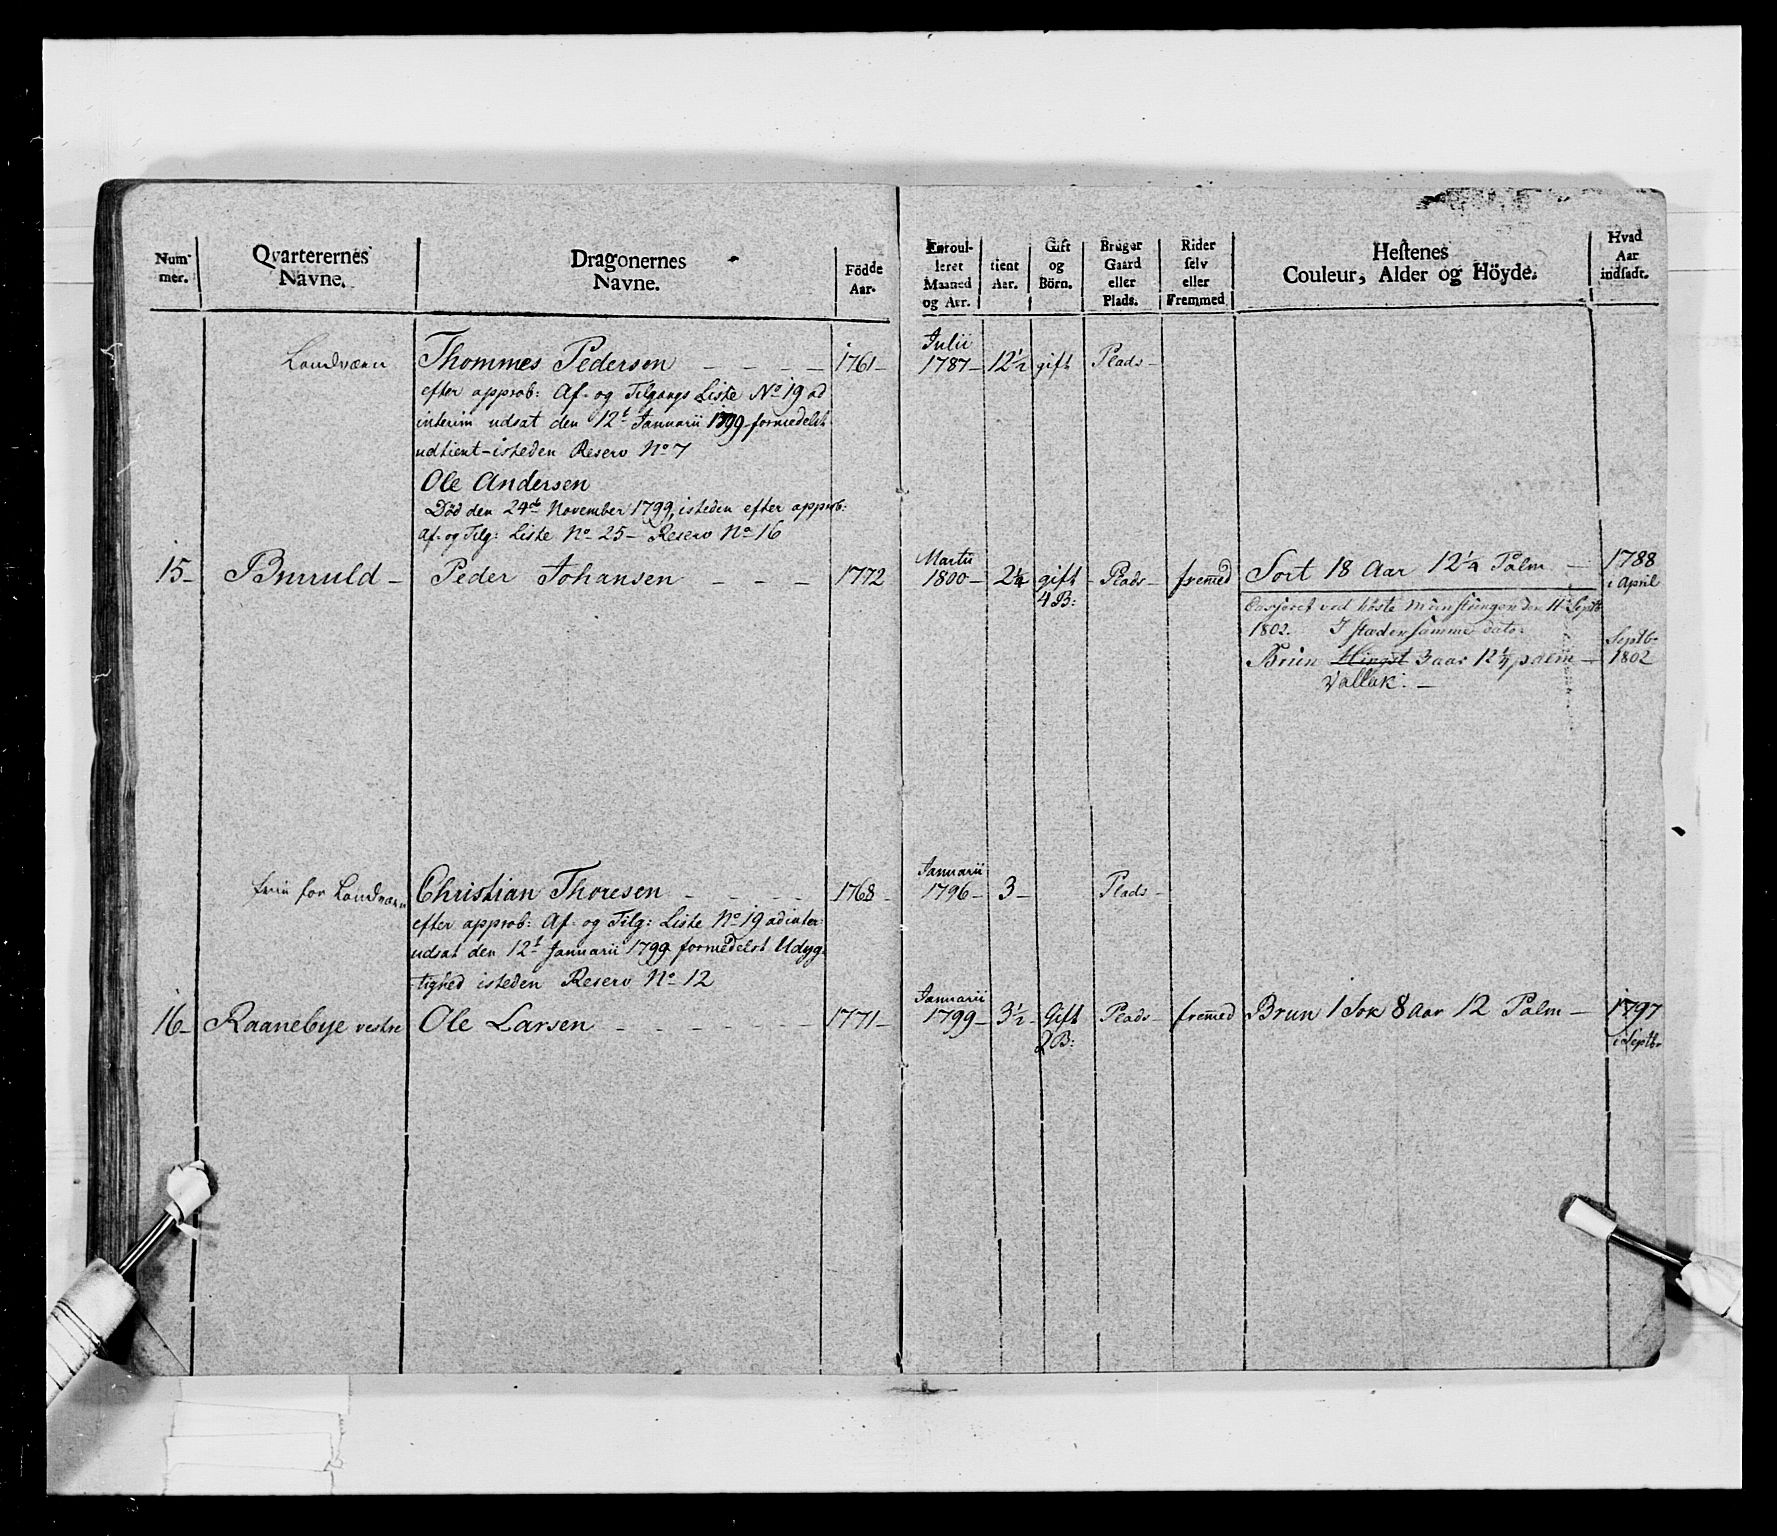 Num-
mer.
Qvarterernes
Navne.
Dragonernes
Navne.
Födde
Aar.
Enroul-
leret
Maaned
og Aar.
tient
Aar.
Gift
og
Börn.
Bruger
Gaard
eller
Plads.
Rider
selv
eller
Fremmed
Hestenes
Couleur, Alder og Höyde.
Hvad
Aar
indsadt.
Landværn Thommes Pedersen - - - - 1761 - Julii 1787 - 12½ gift Plads -
efter approb: Af- og Tilgangs Liste No 19 ad
interim udsat den 12t Januarii 1799 formedelst
udtient - isteden Reserv No 7
Ole Andersen
Död den 24de November 1799, isteden efter approb:
Af- og Tilg: Liste No 25 - Reserv No 16
15 - Peder Johansen - - - 1772 Martii 1800 - 2¼ gift - Plads - fremed Sort 18 Aar 12¼ Palm - 1788
4 B: i April
ved höste Mönstringen den 11 Septb
1802. I stæden samme dato.
Brun Hingst 3 aar 12¼ palm - Septb 1802
Vallak. -
frie for Landværn Christian Thoresen - - - - 1768 - Januarii 1796 - 3 - Plads -
efter approb: Af- og Tilg: Liste No 19 ad inter:
udsat den 12t Januarii 1799 formedelst Udyg-
tighed isteden Reserv No 12
16 - Raanebye vestre Ole Larsen - - - - - 1771 - Januarii 1799 - 3½ - Gift Plads - fremed Brun 1 Sok 8 Aar 12 Palm - 1797
2 B: i Septb-